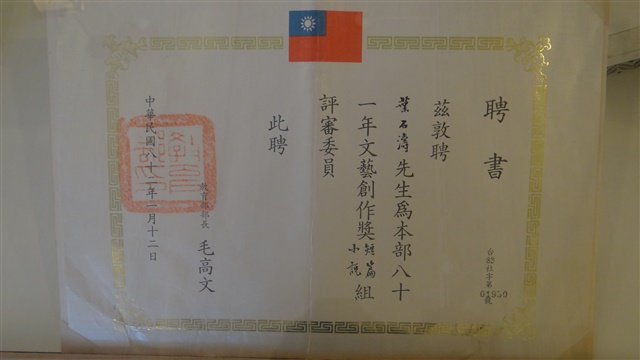 聘書
台 社字第
01950
號
茲敦聘
葉石濤先生為本部八十
一年文藝創作獎短篇小說組
評審委員
此聘
教育部部長 毛高文
中華民國八十二年一月十二日